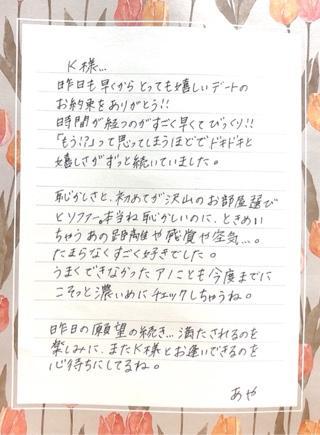 K様...
昨日も早くからとっても嬉しいデートの
お約束をありがとう!!
時間が経つのがすごく早くてびっくり!!
「もう!?」って思ってしまうほどでドキドキと
嬉しさがずっと続いていました。
恥じらしさと、初めてが沢山のお部屋選び
とソファー。本当ね恥かしいのに、ときめい
ちゃうあの距離や感覚や空気...。
たまらなくすごく好きでした。
うまくできなかったアノことも今度までに
こそっと濃いめにチェックしちゃうね。
昨日の願望の続き...満たされるのを
楽しみに、またK様とお逢いできるのを
心待ちにしてるね。
あや